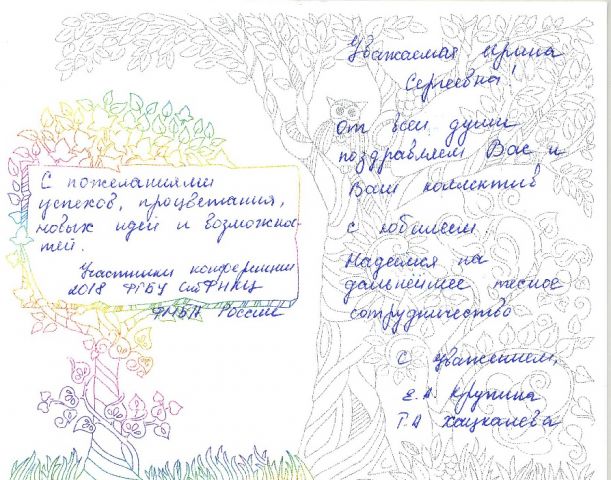 Уважаемая Ирина
Сергеевна!
От всей души
поздравляем Вас и
Ваш коллектив
с юбилеем.
Надеемся на
дальнейшее тесное
сотрудничество
С уважением,
Е.А. Крупина
Т.А
С пожеланиями
успехов, процветания,
новых идей и возможнос-
тей.
Участники конференции
2018 ФГБУ
ФМБА России